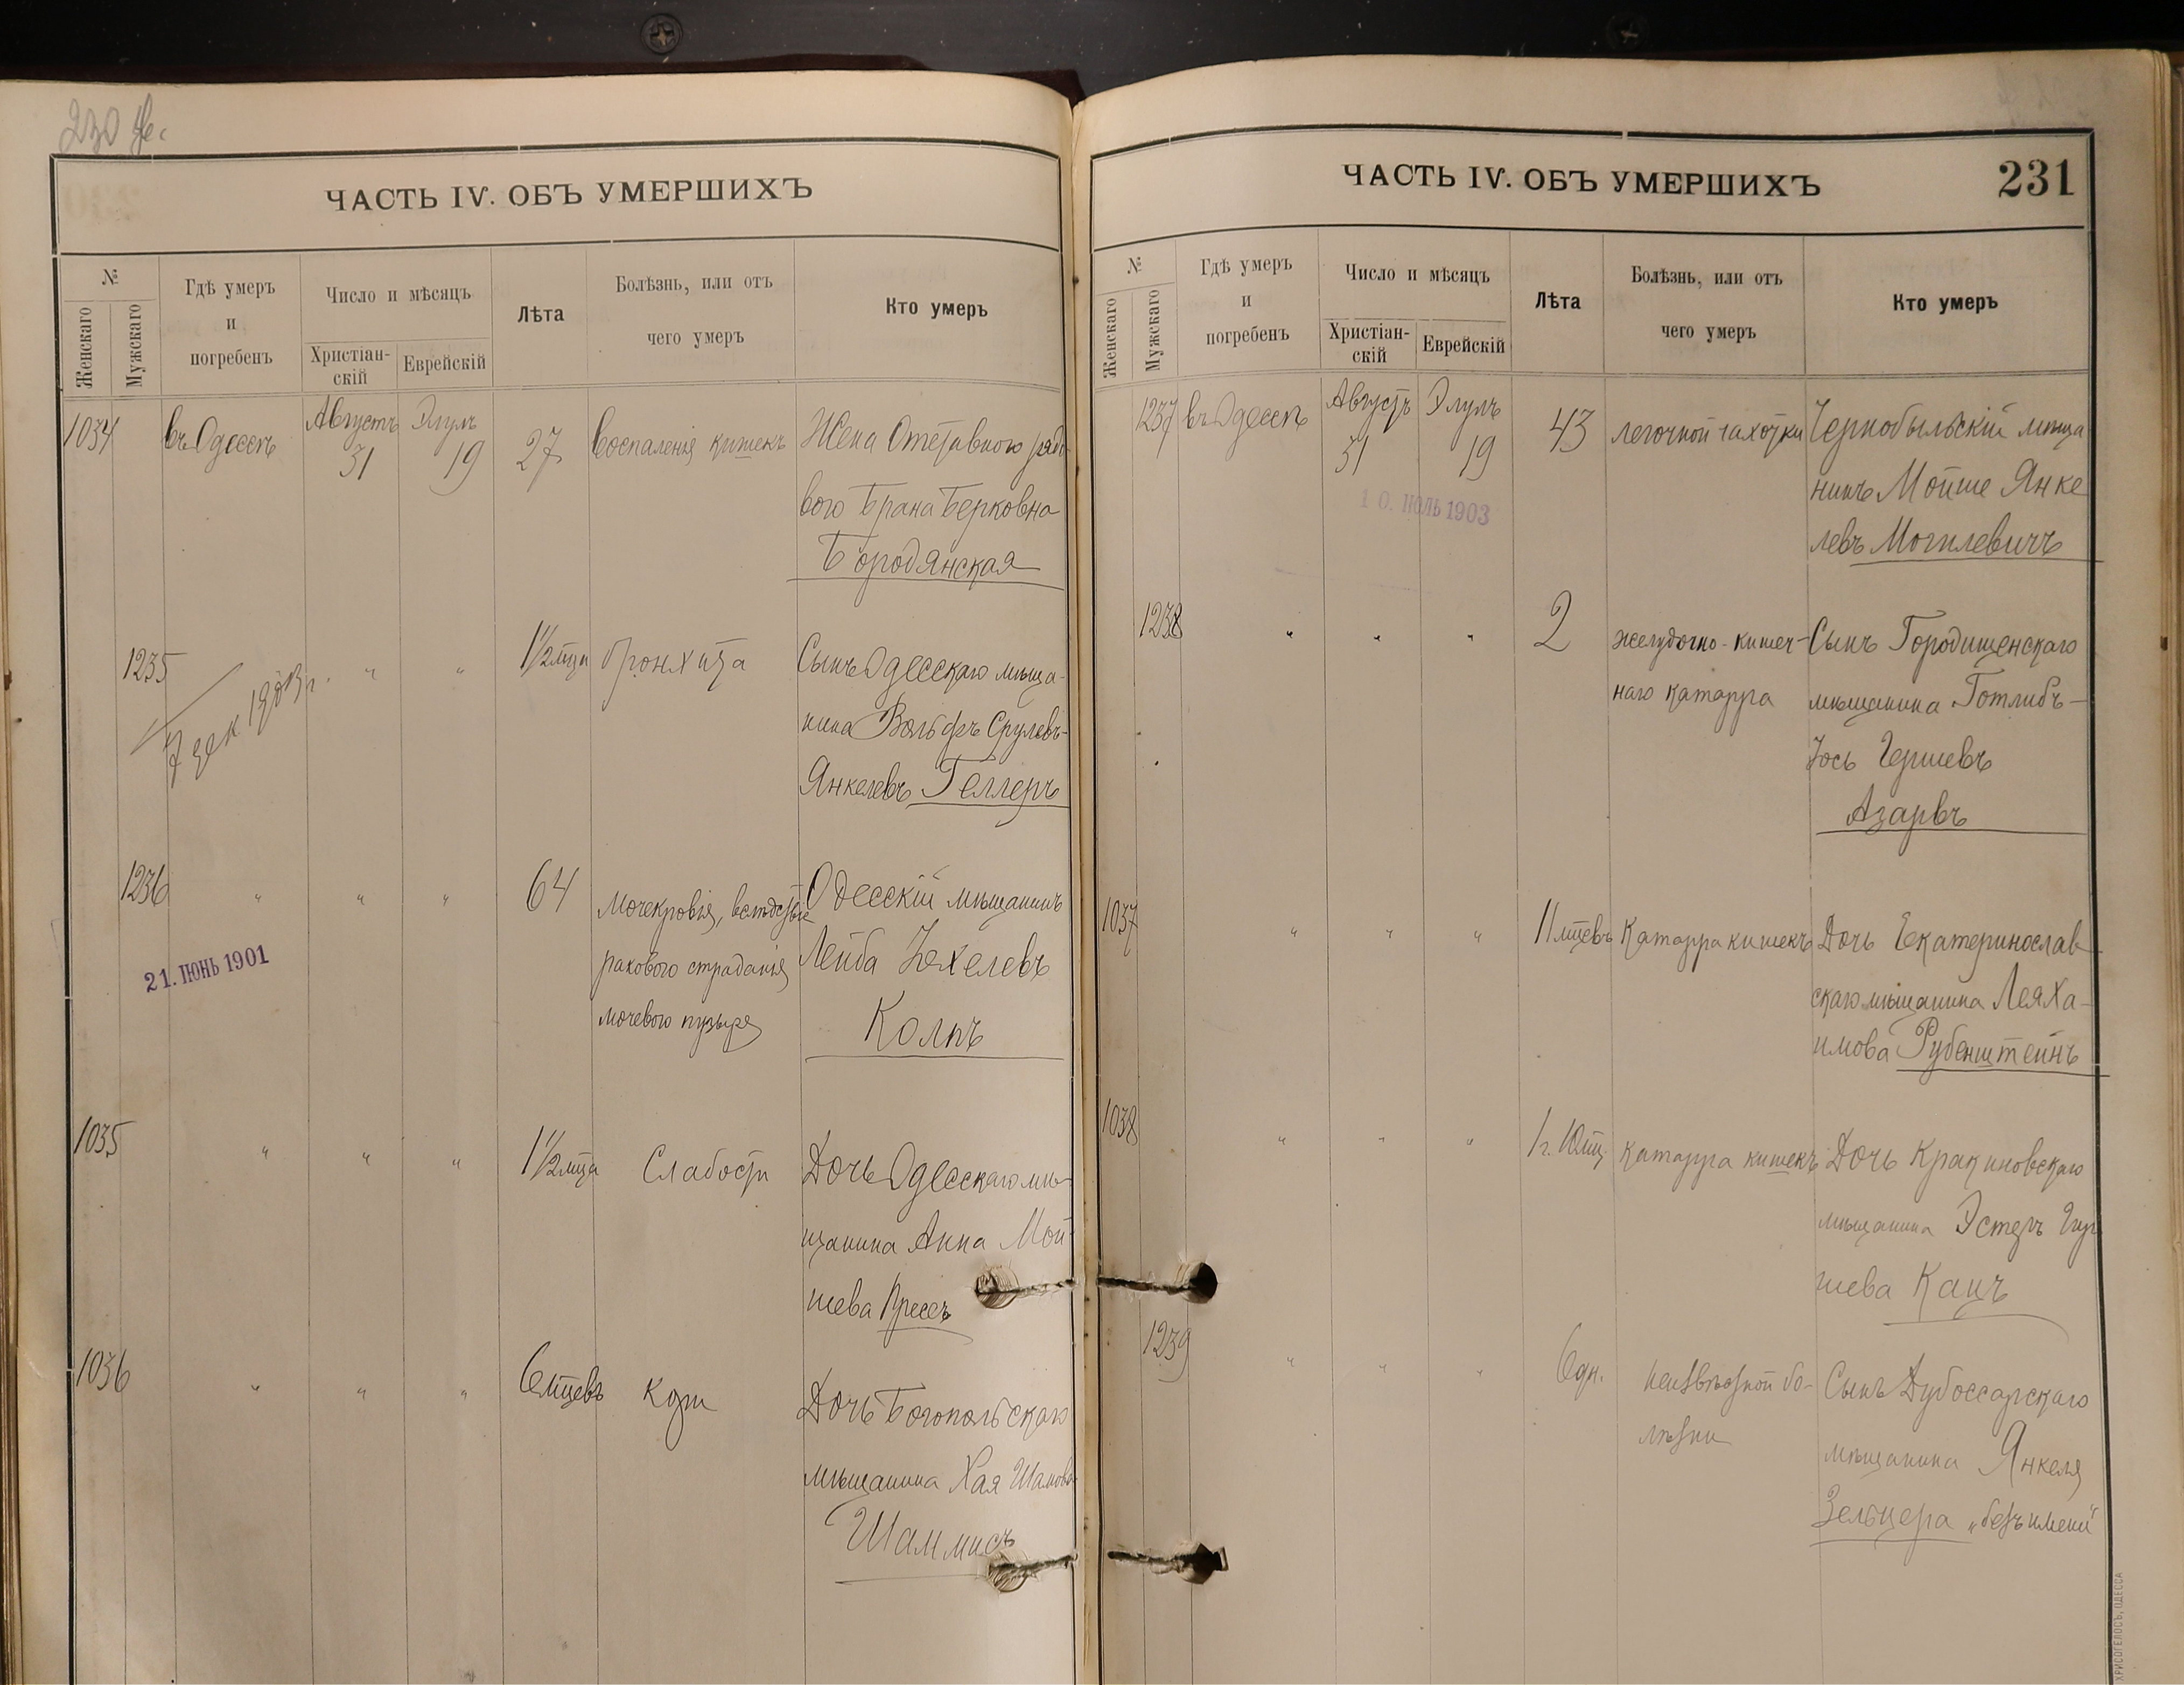 230
ЧАСТЬ IV. ОБЪ УМЕРШИХЪ
№
Женскаго
Мужскаго
Гдѣ умеръ
и
погребенъ
Число и мѣсяцъ
Христіан-
скій
Еврейскій
Лѣта
Болѣзнь, или отъ
чего умеръ
Кто умеръ
1034 въ Одессѣ Августъ 31 Элулъ 19 27 Воспаленія кишекъ Жена Отставного рядо-
вого Брана Берковна
Бородянская
1235 " " 1½ мца бронхита Сынъ Одесскаго мѣща-
нина Вольфъ Срулевъ-
Янкелевъ Геллеръ
7 дек 1903 г.
1236 " " " 64 мочекровія, вслѣдствіе Одесскій мѣщанинъ
раковаго страданія Лейба Іохелевъ
мочевого пузыря Колпъ
21. ІЮНЬ 1901
1035 " " " 1½ мца Слабости Дочь Одесскаго мѣ-
щанина Анна Мой-
шева Крессъ
1036 " " " 6 мцевъ кори Дочь Богопольскаго
мѣщанина Хая Шамова
Шаммисъ
ЧАСТЬ IV. ОБЪ УМЕРШИХЪ
231
№
Женскаго
Мужскаго
Гдѣ умеръ
и
погребенъ
Число и мѣсяцъ
Христіан-
скій
Еврейскій
Лѣта
Болѣзнь, или отъ
чего умеръ
Кто умеръ
1237 въ Одессѣ Августъ 31 Элулъ 19 43 легочной чахотки Чернобыльскій мѣща
нинъ Мойше Янке
левъ Могилевичъ
10. ІЮЛЬ 1903
1238 " " " 2 желудочно-кишеч- Сынъ Городищенскаго
наго катарра мѣщанина Готлибъ-
Іось Гершевъ
Азарвъ
1037 " " " 11 мцевъ Катарра кишекъ Дочь Екатеринослав
скаго мѣщанина Лея Ха-
имова Рубенштейнъ
1038 " " " 1 г. 10 мц. катарра кишекъ Дочь Кракиновскаго
мѣщанина Эстеръ Гер
шева Кацъ
1239 " " " 6 дн. неизвѣстной бо- Сынъ Дубоссарскаго
лѣзни мѣщанина Янкеля
Зельцера „безъ имени"
ХРИСОГЕЛОСЪ, ОДЕССА